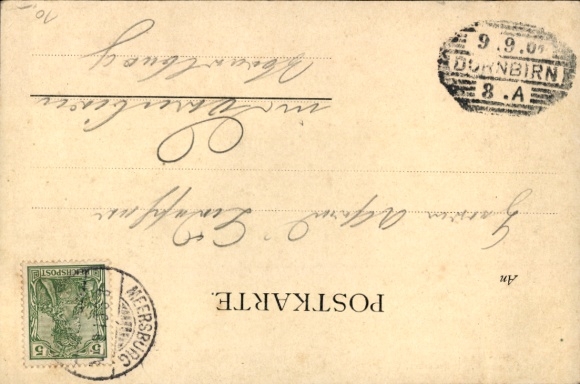 POSTKARTE.
An
Herrn Alfred
in Dornbirn
Vorarlberg
MEERSBURG
REICHSPOST
5 5
9.9.01
DORNBIRN
8.A
10,-